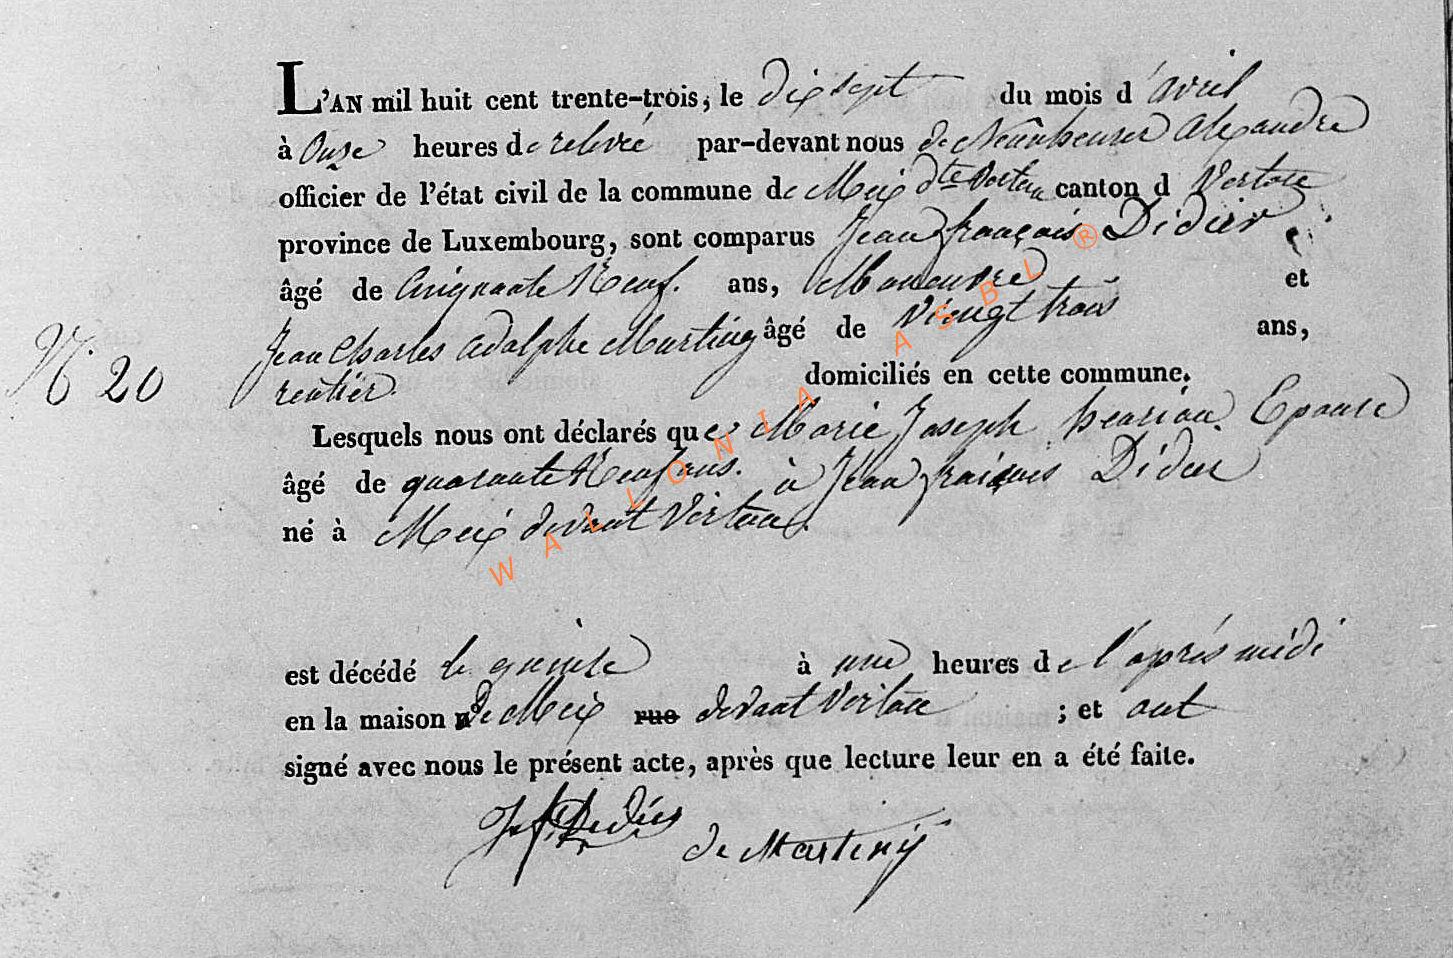 L'AN mil huit cent trente-trois, le dixsept du mois d'avril
à Onze heures de relevée par-devant nous de Alexandre
officier de l'état civil de la commune de Meix dte Virton canton d Virton
province de Luxembourg, sont comparus Jean françois Didier
âgé de Cinquante Neuf. ans, Manœuvre et
Jean Charles Adolphe Martiny âgé de Viengt trois ans,
rentier domiciliés en cette commune.
N. 20
Lesquels nous ont déclarés que Marie Joseph Epouse
âgé de quarante Neuf ans. à Jean françois Didier
né à Meix devant Virton.
est décédé le quinze à une heures de l'après midi
en la maison de Meix rue devant Virton ; et ont
signé avec nous le présent acte, après que lecture leur en a été faite.
J f Didier
de Martiny
WALLONIA ASBL ®